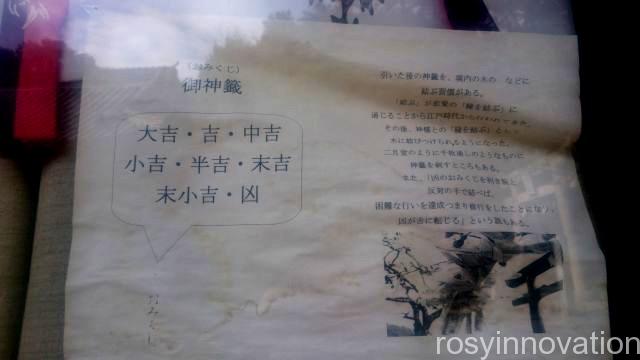 (おみくじ)
御神籤
大吉・吉・中吉
小吉・半吉・末吉
末小吉・凶
おみくじ
引いた後の神籤を、境内の木の などに
結ぶ習慣がある。
「結ぶ」が恋愛の「縁を結ぶ」に
通じることから江戸時代から行われてきた。
その後、神様との「縁を結ぶ」として
木に結びつけられるようになった。
二月堂のように千枚通しのようなものに
神籤を刺すところもある。
また、「凶のおみくじを利き腕と
反対の手で結べば、
困難な行いを達成つまり修行をしたことになり、
凶が吉に転じる」という説もある。
rosyinnovation